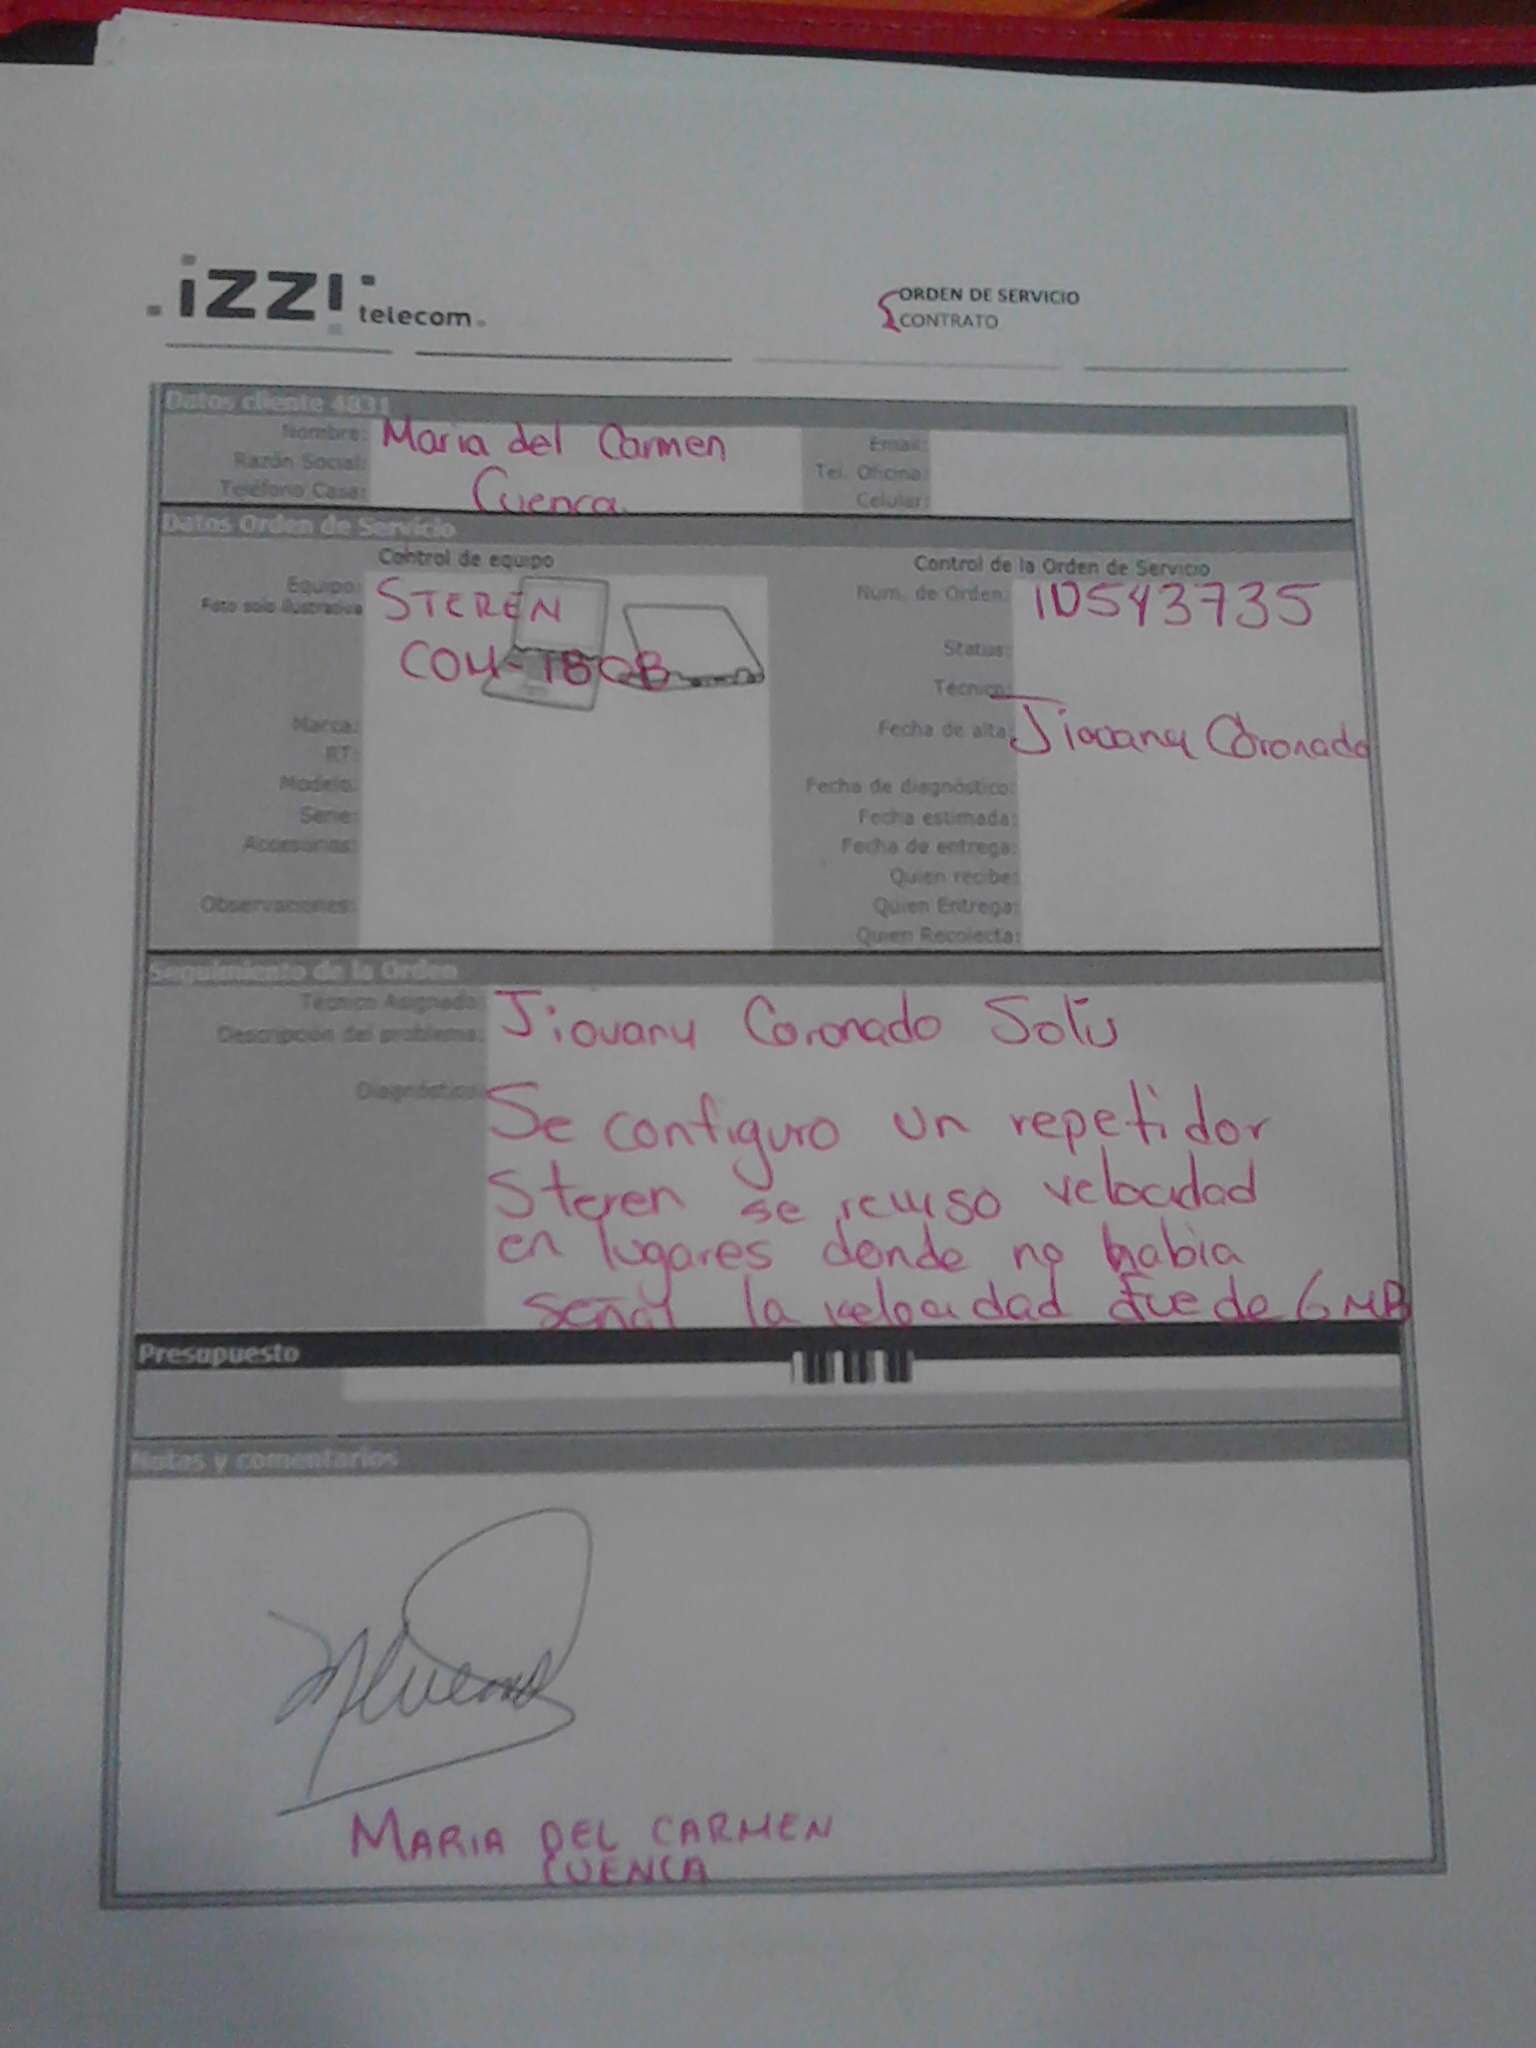 izzi telecom
ORDEN DE SERVICIO
CONTRATO
Datos cliente 4831
Nombre: Maria del Carmen
Razón Social:
Teléfono Casa: Cuenca
Email:
Tel. Oficina:
Celular:
Datos Orden de Servicio
Control de equipo
Equipo: STEREN
Foto solo ilustrativa
COM-
Marca:
RT:
Modelo:
Serie:
Accesorios:
Observaciones:
Control de la Orden de Servicio
Num. de Orden: ID543735
Status:
Técnico:
Fecha de alta: Jiovany Coronado
Fecha de diagnóstico:
Fecha estimada:
Fecha de entrega:
Quien recibe:
Quien Entrega:
Quien Recolecta:
Seguimiento de la Orden
Técnico Asignado: Jiovany Coronado Solis
Descripción del problema:
Diagnóstico: Se configuro un repetidor
Steren se reviso velocidad
en lugares donde no habia
señal la velocidad fue de 6 MB
Presupuesto
Notas y comentarios
MARIA DEL CARMEN
CUENCA